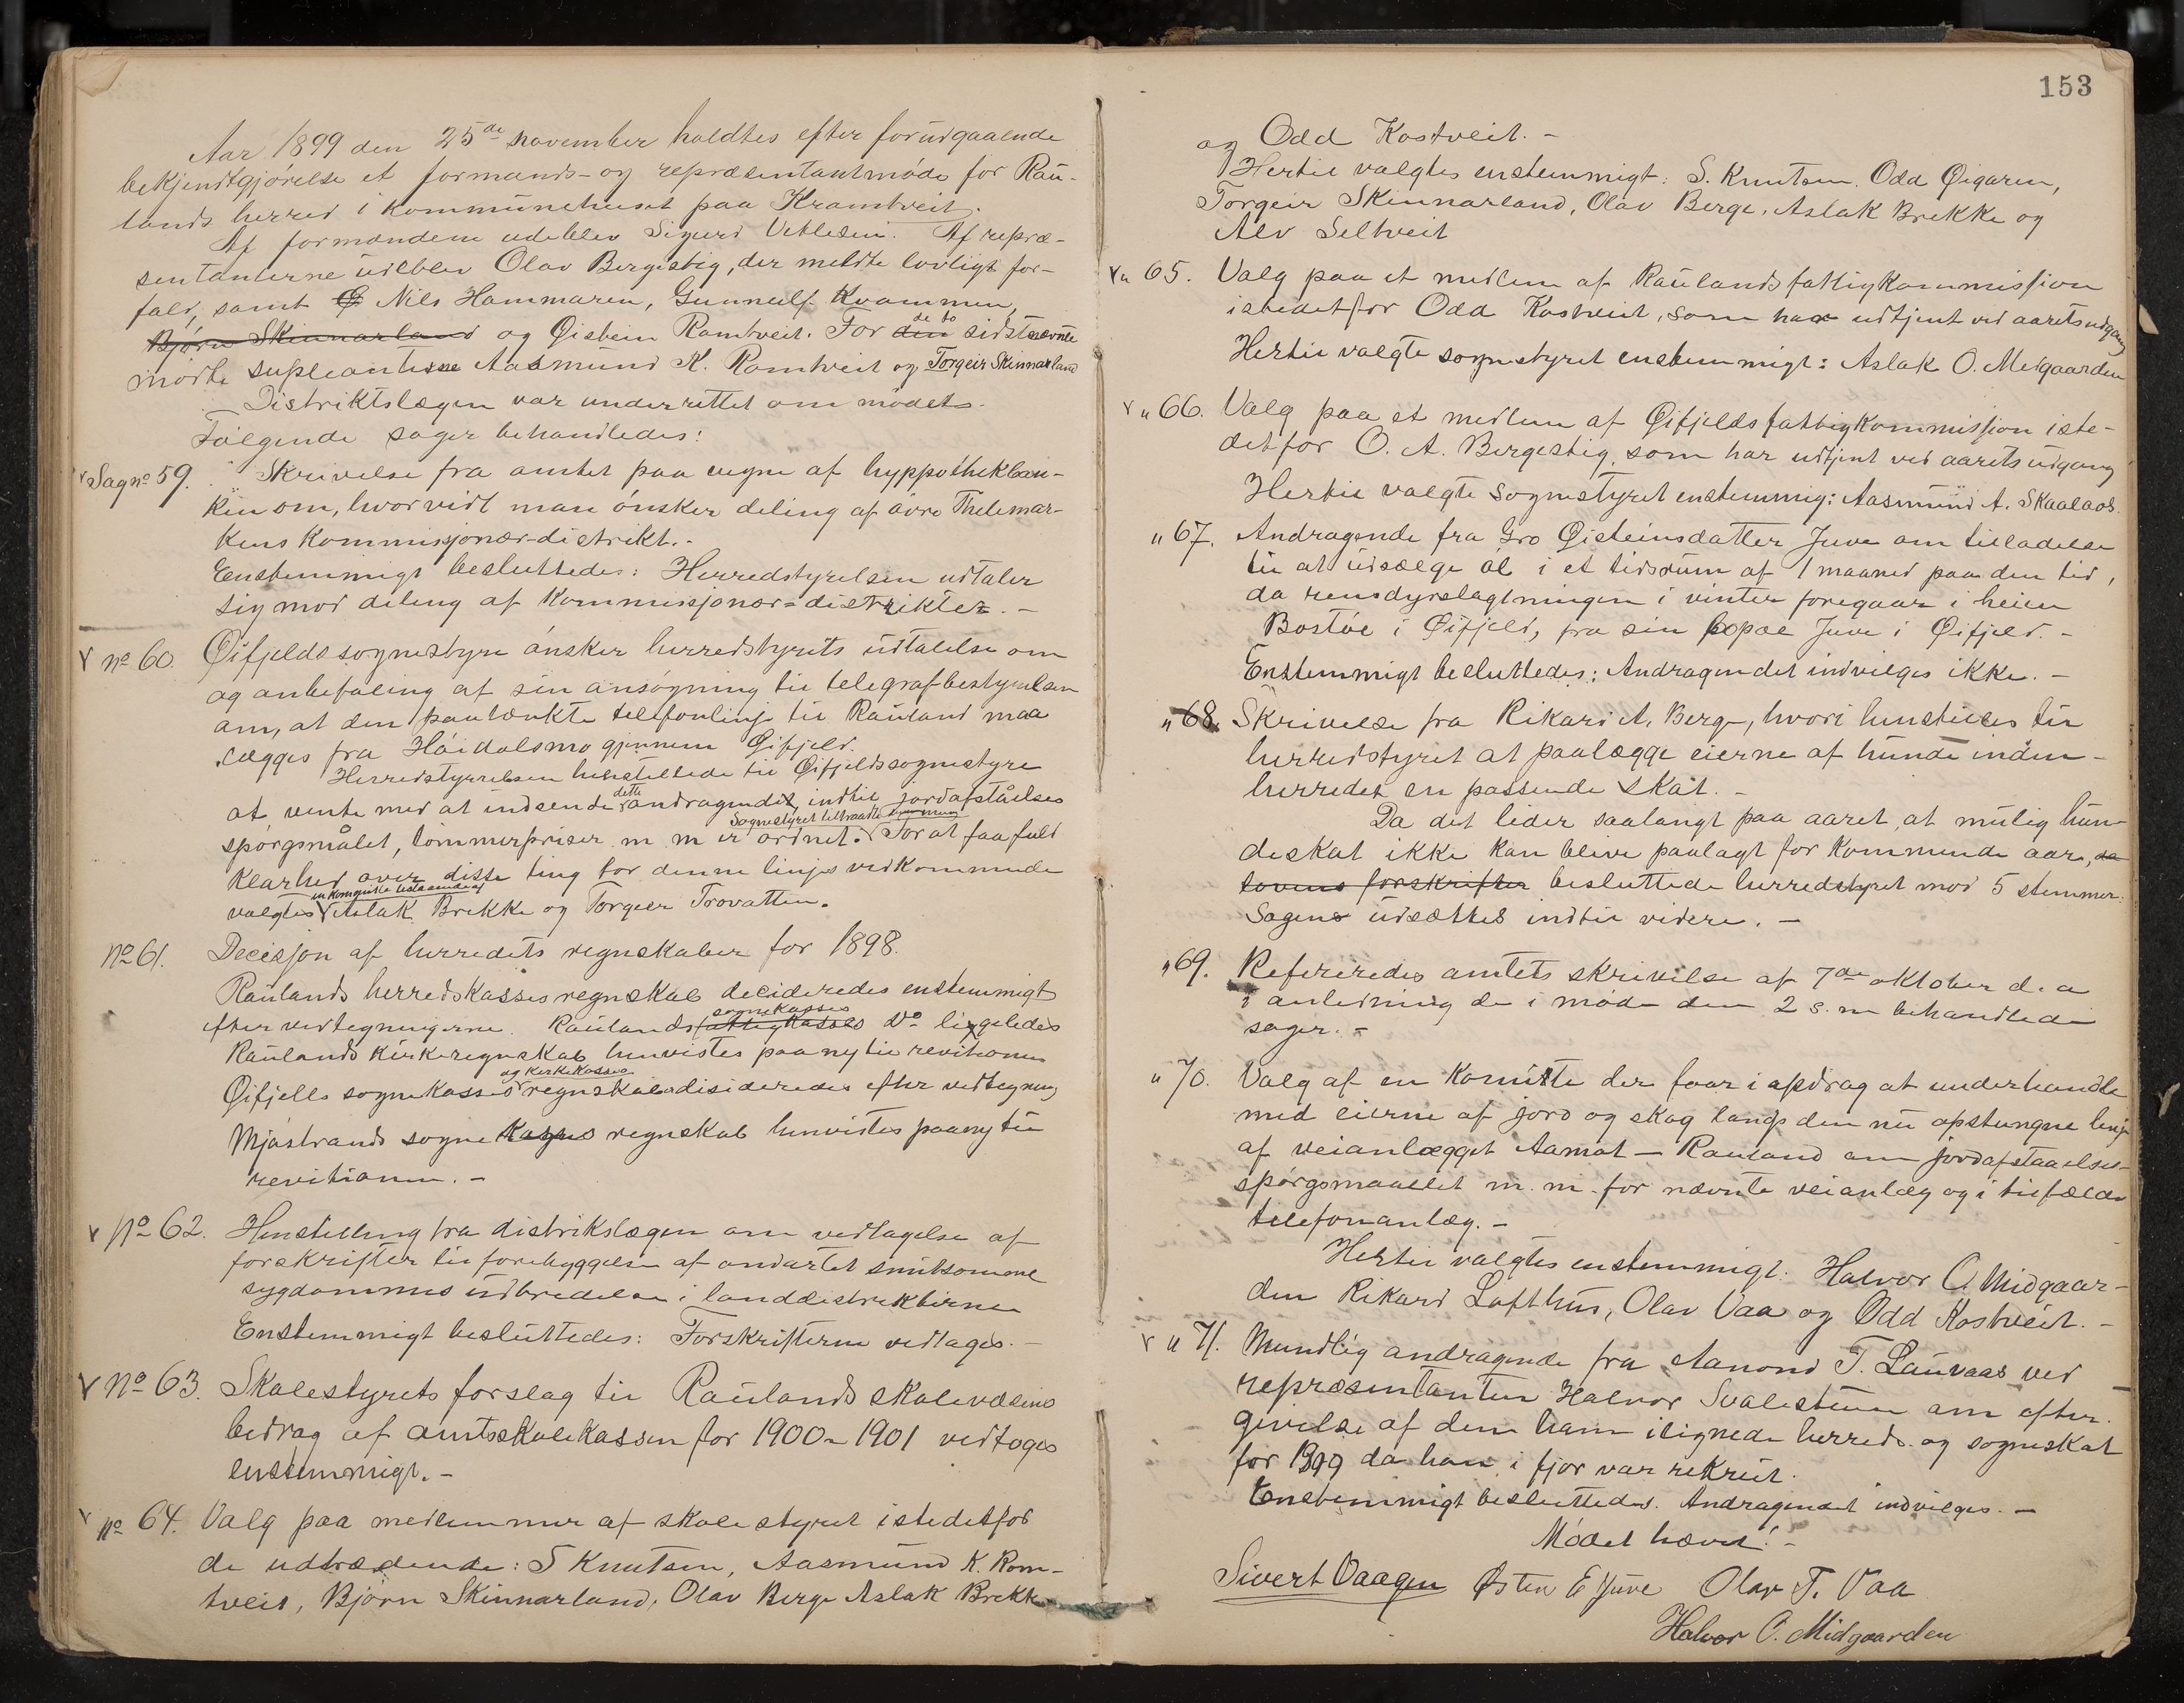 Aar 1899 den 25de november holdtes efter forudgaaende
bekjendtgjørelse et formands- og repræsentantmøde for Rau-
lands herred i kommunehuset paa Kramtveit.
Af formændene udeblev Sigurd Vetlesen. Af repræ-
sentanterne udeblev Olav Bergestig, der meldte lovligt for-
fald, samt Nils Hammaren, Gunnulf Kvammen,
Bjørn Skinnarland og Øistein Romtveit. For den de to sidstnævnte
mødte supleanterne Aasmund K. Romtveit og Torgeir Skinnarland
Distriktslægen var underrettet om mødets.
Følgende sager behandledes:
Sag no 59. Skrivelse fra amtet paa vegne af hyppothekban-
ken om, hvorvidt man ønsker deling af øvre Thelemar-
kens kommissjonær-distrikt.-
Enstemmigt besluttedes: Herredstyrelsen udtaler
sig mod deling af kommissjonær-distriktet. -
no 60. Øifjelds sognestyre ønsker herredstyrets udtalelse om
og anbefaling af sin ansøgning til telegrafbestyrelsen
om, at den paatænkte telefonlinje til Rauland maa
lægges fra Høidalsmo gjennem Øifjeld.
Herredstyrrelsen henstillede til Øifjelds sognestyre
at vente med at indsende dette andragendet, indtil jordafståelses
spørgsmålet, tømmerpriser m m er ordnet. Sognestyret tiltraadte For at faa fuld
klarhed over disse ting for denne linjes vedkommende
valgtes en komite bestaaende af Aslak Brekke og Torgeir Trovatten.
No 61. Decisjon af herredets regnskaber for 1898.
Raulands herredskasses regnskab decideredes enstemmigt
efter vedtegningerne. Raulands fattigkasses sognekasses Do ligeledes
Raulands kirkeregnskab henvistes paa ny til revitionen
Øifjells sognekasses og kirkekasses regnskab disideredes efter vedtegning
Mjøstrands sognekasses regnskab henvistes paany til
revitionen. -
No 62. Henstilling fra distrikslægen om vedtagelse af
forskrifter til forebyggelse af ondartet smitsomme
sygdommes udbredelse i landdistrikterne
Enstemmigt besluttedes: Forskrifterne vedtages. -
No 63. Skolestyrets forslag til Raulands skolevæsens
bidrag af amtsskolekassen for 1900-1901 vedtoges
enstemmigt. -
no 64. Valg paa medlemmer af skolestyret istedetfor
de udtrædende: S Knutsen, Aasmund K. Rom-
tveit, Bjørn Skinnarland, Olav Berge Aslak Brekke
153
og Odd Kostveit. -
Hertil valgtes enstemmigt: S. Knutsen. Odd Øigaren,
Torgeir Skinnarland, Olav Berge, Aslak Brekke og
Alv Seltveit
" 65. Valg paa et medlem af Raulands fattigkommission
istedetfor Odd Kostveit, som har udtjent ved aarets udgang
Hertil valgte sognestyret enstemmigt: Aslak O. Midgaarden
" 66. Valg paa et medlem af Øifjelds fattigkommission iste-
detfor O. A. Bergestig, som har udtjent ved aarets udgang
Hertil valgte sognestyret enstemmig: Aasmund A. Skaalaos.
" 67. Andragende fra Gro Øisteinsdatter Juve om tilladelse
til at udsælge øl i et tidsrum af 1 maaned paa den tid,
da rensdyrslagtningen i vinter foregaar i heien
Bostøe i Øifjeld, fra sin bopæl Juve i Øifjeld. -
Enstemmigt besluttedes: Andragendet indvilges ikke. -
" 68. Skrivelse fra Rikard A. Berge, hvori henstilles til
herredstyret at paalægge eierne af hunde inden-
herredet en passende skat. -
Da det lider saalangt paa aaret, at mulig hun-
deskat ikke kan blive paalagt for kommende aar,
lovens forskrifter besluttede herredstyret mod 5 stemmer.
Sagens udsættes indtil videre. -
" 69. Refereredes amtets skrivelse af 7de oktober d. a
i anledning de i møde den 2 s. m behandlede
sager. -
" 70. Valg af en komitte der faar i opdrag at underhandle
med eierne af jord og skog langs den nu opstungne linje
af veianlægget Aamot - Rauland om jordafstaaelses-
spørgsmaalet m. m. for nævnte veianlæg og i tilfælde
telefonanlæg. -
Hertil valgtes enstemmigt: Halvor O. Midgaar-
den Rikard Lofthus, Olav Vaa og Odd Kostveit. -
" 71. Mundlig andragende fra Aanond T. Lauvaas ved
repræsentanten Halvor Svalestuen om efter-
givelse af den ham ilignede herreds- og sogneskat
for 1899 da han i fjor var rekrut.
Enstemmigt besluttedes. Andragendet indvilges. -
Mødet hævet! -
Sivert Vaagen Østen E Juve Olav T. Vaa
Halvor O. Midgaarden